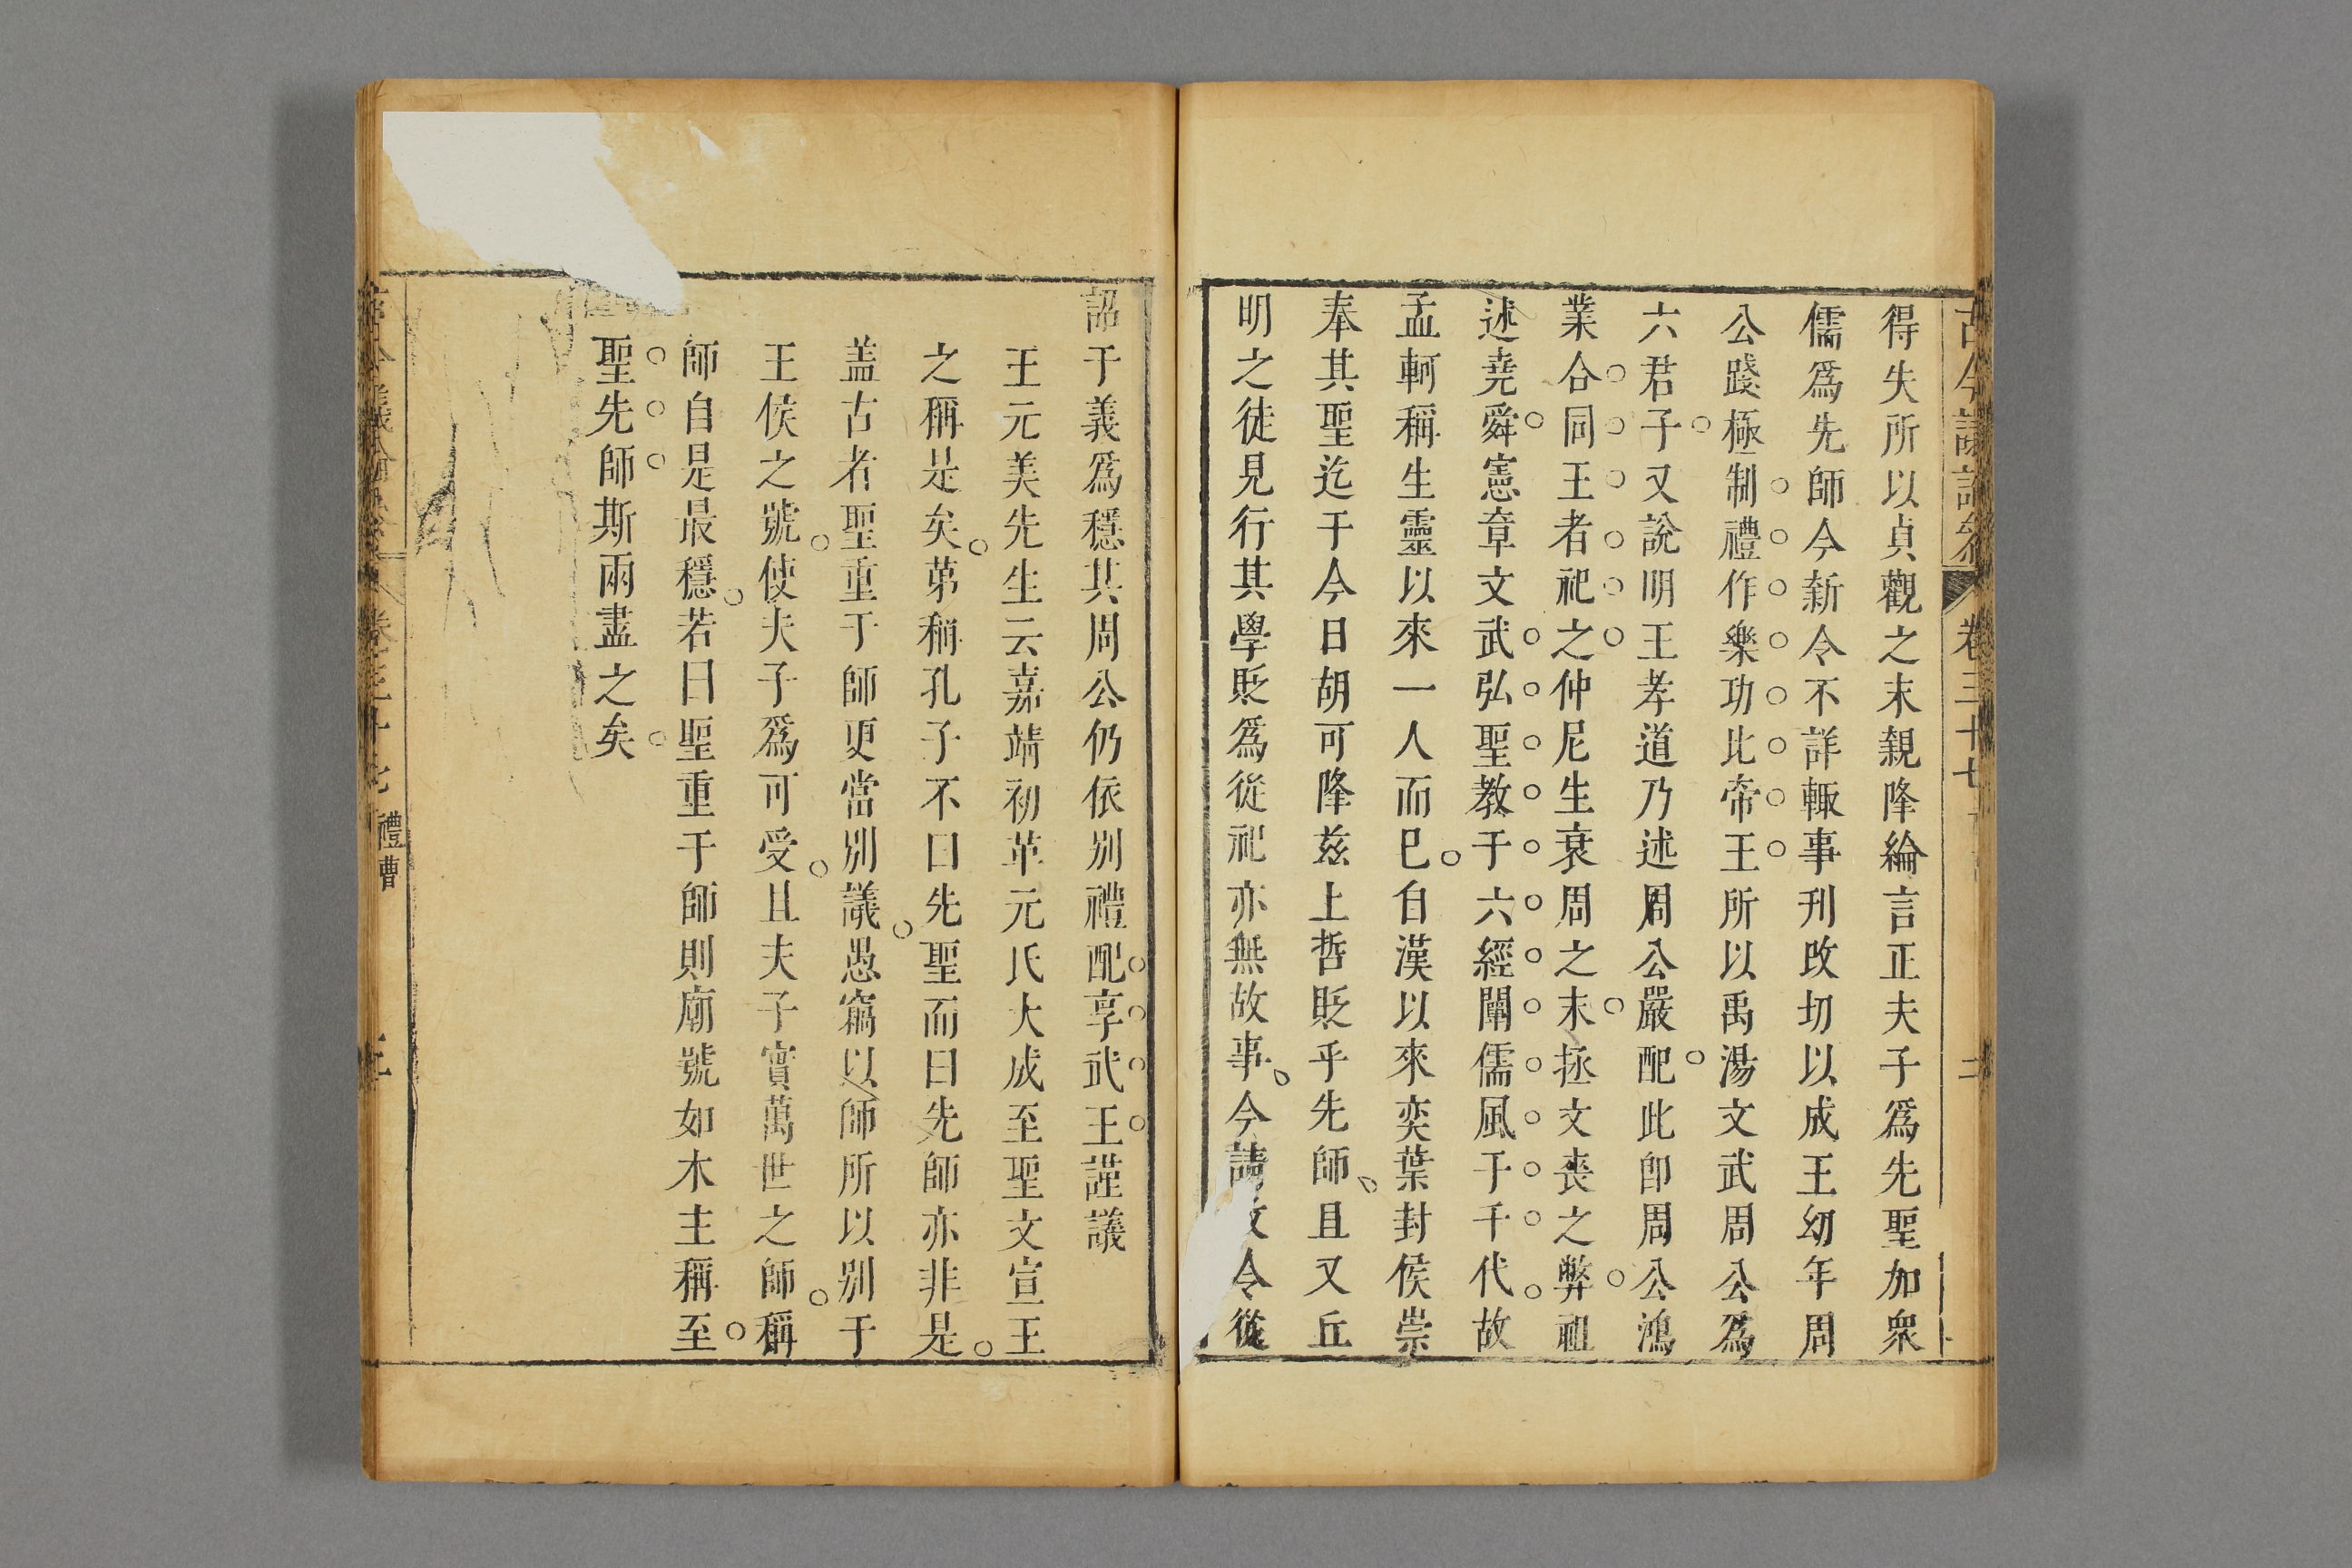 古今議論參 卷三十七 二
得失所以貞觀之末親降綸言正夫子爲先聖加衆
儒爲先師今新令不詳輙事刋改切以成王幼年周
公踐極制禮作樂功比帝王所以禹湯文武周公爲
六君子又說明王孝道乃述周公嚴配此卽周公鴻
業合同王者祀之仲尼生衰周之末拯文喪之弊祖
述堯舜憲章文武弘聖教于六經闡儒風于千代故
孟軻稱生靈以來一人而巳自漢以來奕葉封侯崇
奉其聖迄于今日胡可降兹上哲貶乎先師且又丘
明之徒見行其學貶爲從祀亦無故事今請改令從
詔于義爲穩其周公仍依别禮配享武王謹議
王元美先生云嘉靖初革元氏大成至聖文宣王
之稱是矣苐稱孔子不曰先聖而曰先師亦非是
盖古者聖重于師更當别議愚竊以師所以别于
王侯之號使夫子爲可受且夫子實萬世之師稱
師自是最穩若曰聖重于師則廟號如木主稱至
聖先師斯兩盡之矣
卷三十七 禮曹